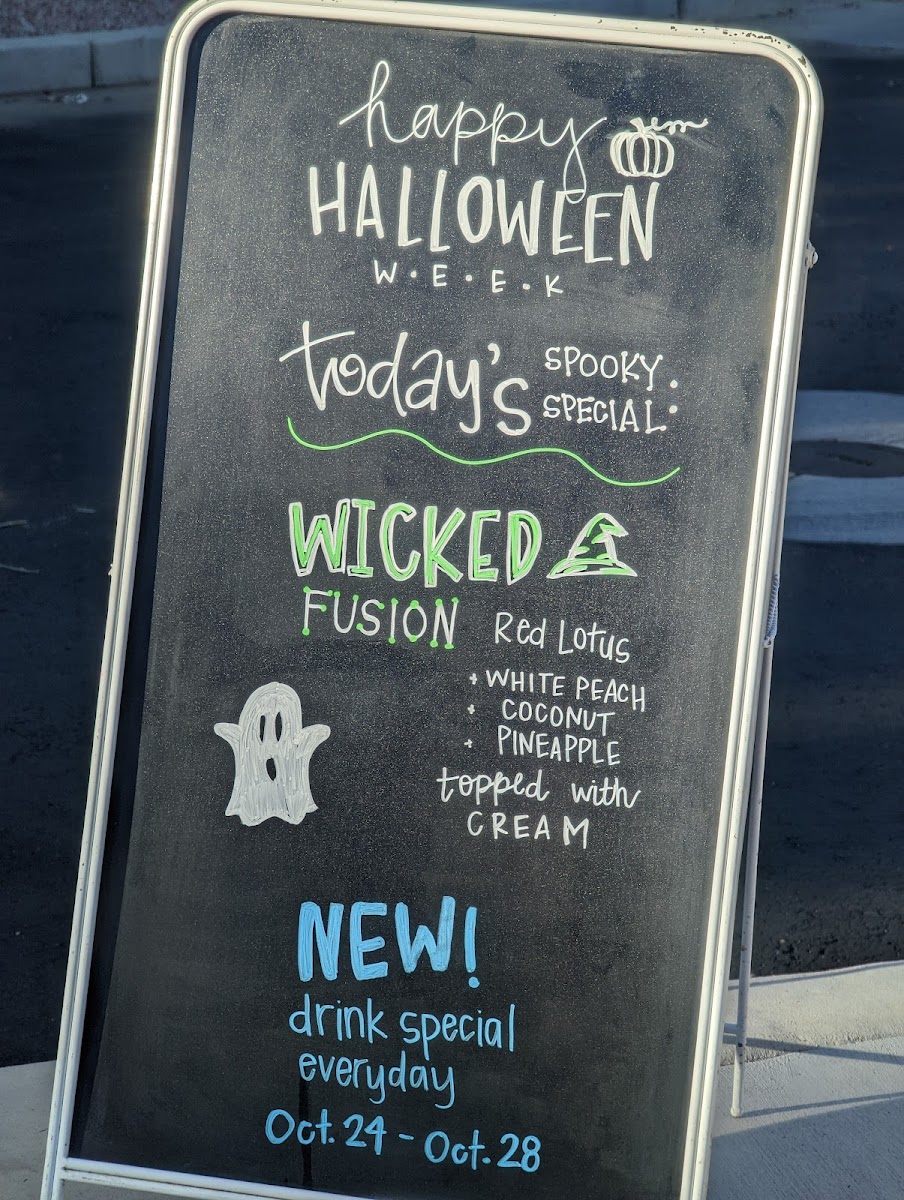 happy
HALLOWEEN
W·E·E·K
today's SPOOKY
SPECIAL:
WICKED
FUSION Red Lotus
+ WHITE PEACH
+ COCONUT
+ PINEAPPLE
topped with
CREAM
NEW!
drink special
everyday
Oct. 24 - Oct. 28